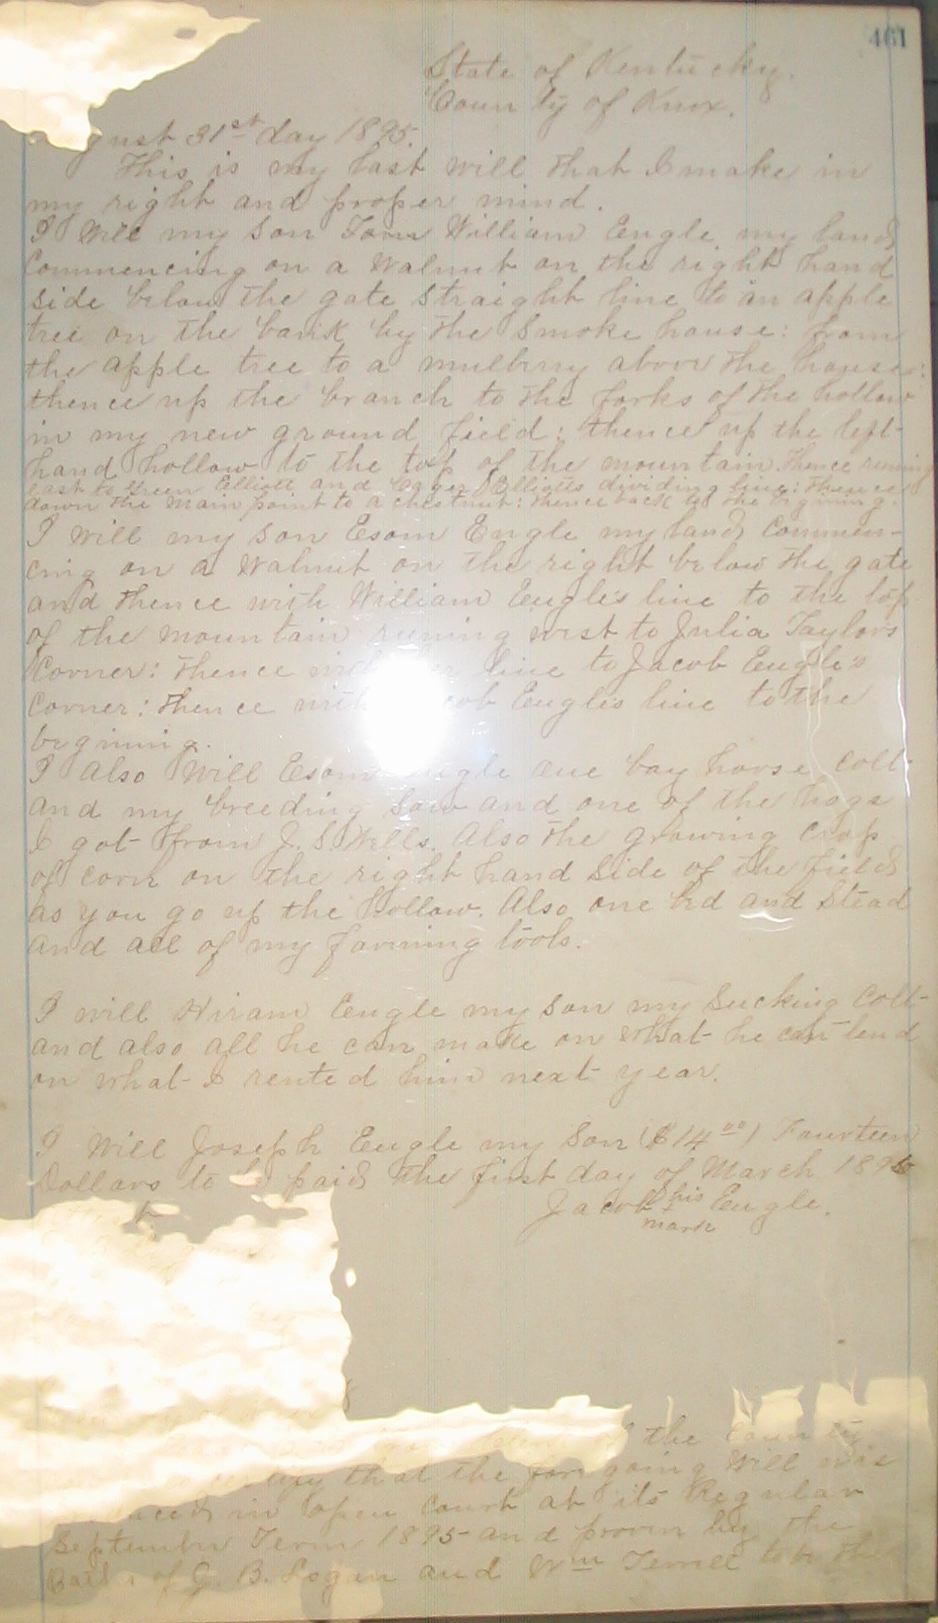 461
State of Kentucky.
County of Knox.
gust 31st day 1895.
This is my last will that I make in
my right and proper mind.
I Will my son Tom William Engle my land
Commencing on a Walnut on the right hand
side below the gate straight line to an apple
tree on the bank by the smoke house: from
the apple tree to a mulberry above the house:
thence up the branch to the forks of the hollow
in my new ground field: thence up the left-
hand hollow to the top of the mountain. Thence runing
east to Green Elliott and Elliotts dividing line: Thence
down the main point to a chestnut: thence back to the begining.
I Will my son Esom Engle my land Commen-
cing on a Walnut on the right below the gate
and thence with William Engles line to the top
of the mountain runing west to Julia Taylors
Corner: Thence with her line to Jacob Engle's
Corner: thence with cob Engles line to the
begining.
I Also Will Esom Engle one bay horse Colt-
and my breeding Sow and one of the hogs
I got from J. S. Wells. Also the growing crop
of corn on the right hand side of the field
as you go up the Hollow. Also one bd and Stead
and all of my farming tools.
I will Hiram Engle my son my Sucking Colt-
and also all he can make on what he can tend
on what I rented him next year.
I Will Joseph Engle my Son ($14 00) Fourteen
Dollars to be paid the first day of March 189
Jacob his Engle.
mark
of the County
that the foregoing Will was
in open Court at its Regular
September Term 1895 and proven by the
Oaths of G. B. Logan and Wm Terrell to be the